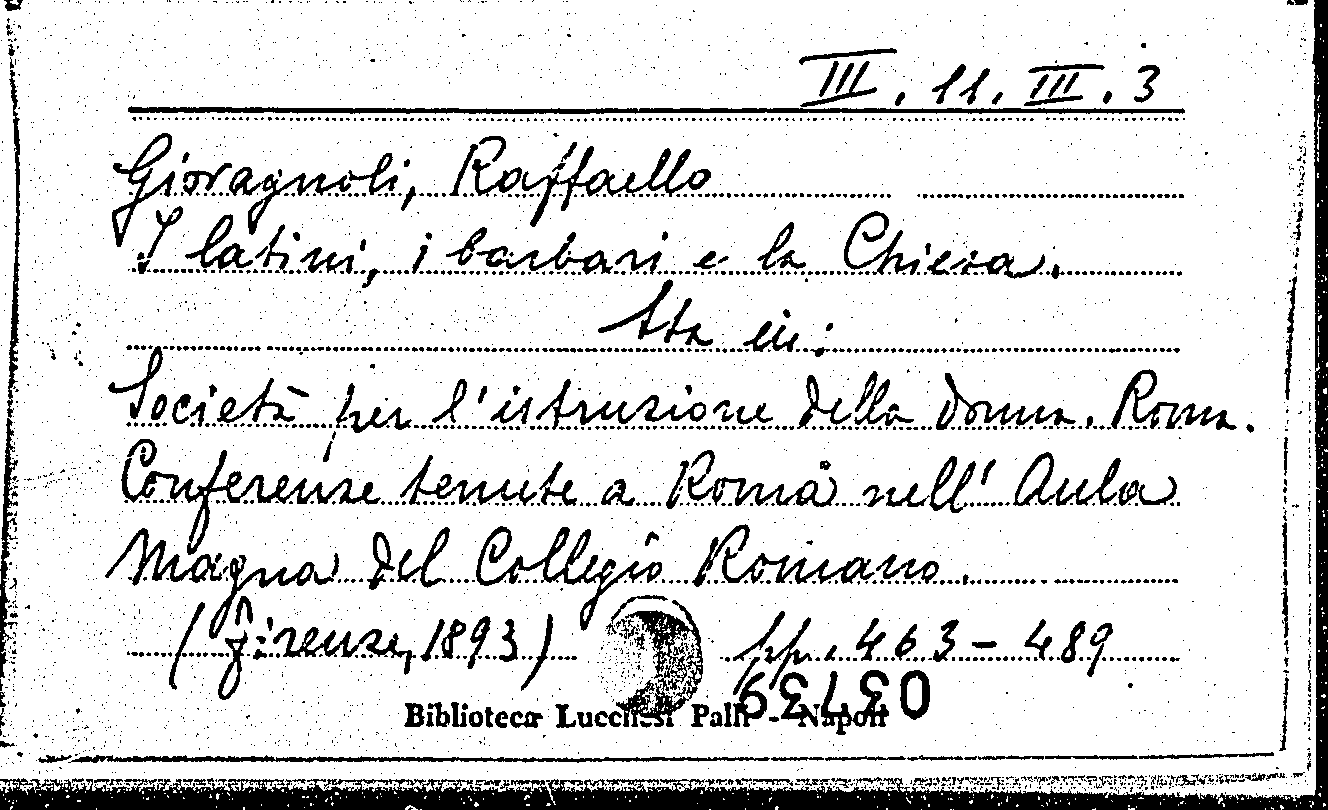 III. 11. III. 3
Giovagnoli, Raffaello
I latini, i barbari e la Chiesa.
Sta in:
Società per l'istruzione della donna. Roma.
Conferenze tenute a Roma nell' Aula
Magna del Collegio Romano.
(Firenze, 1893) pp. 463-489
03739
Biblioteca Lucchesi Palli - Napoli